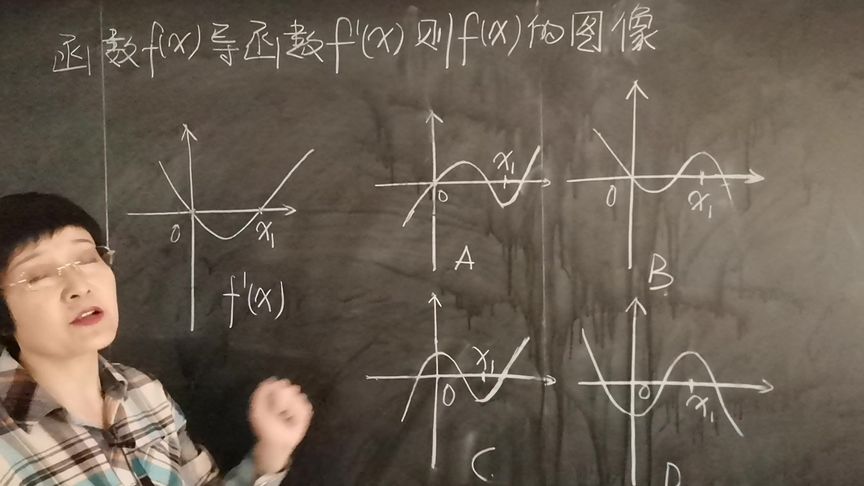 函数f(x)导函数f'(x)则f(x)的图像
0 x₁
f'(x)
0 x₁
A
0 x₁
B
0 x₁
C
0 x₁
D